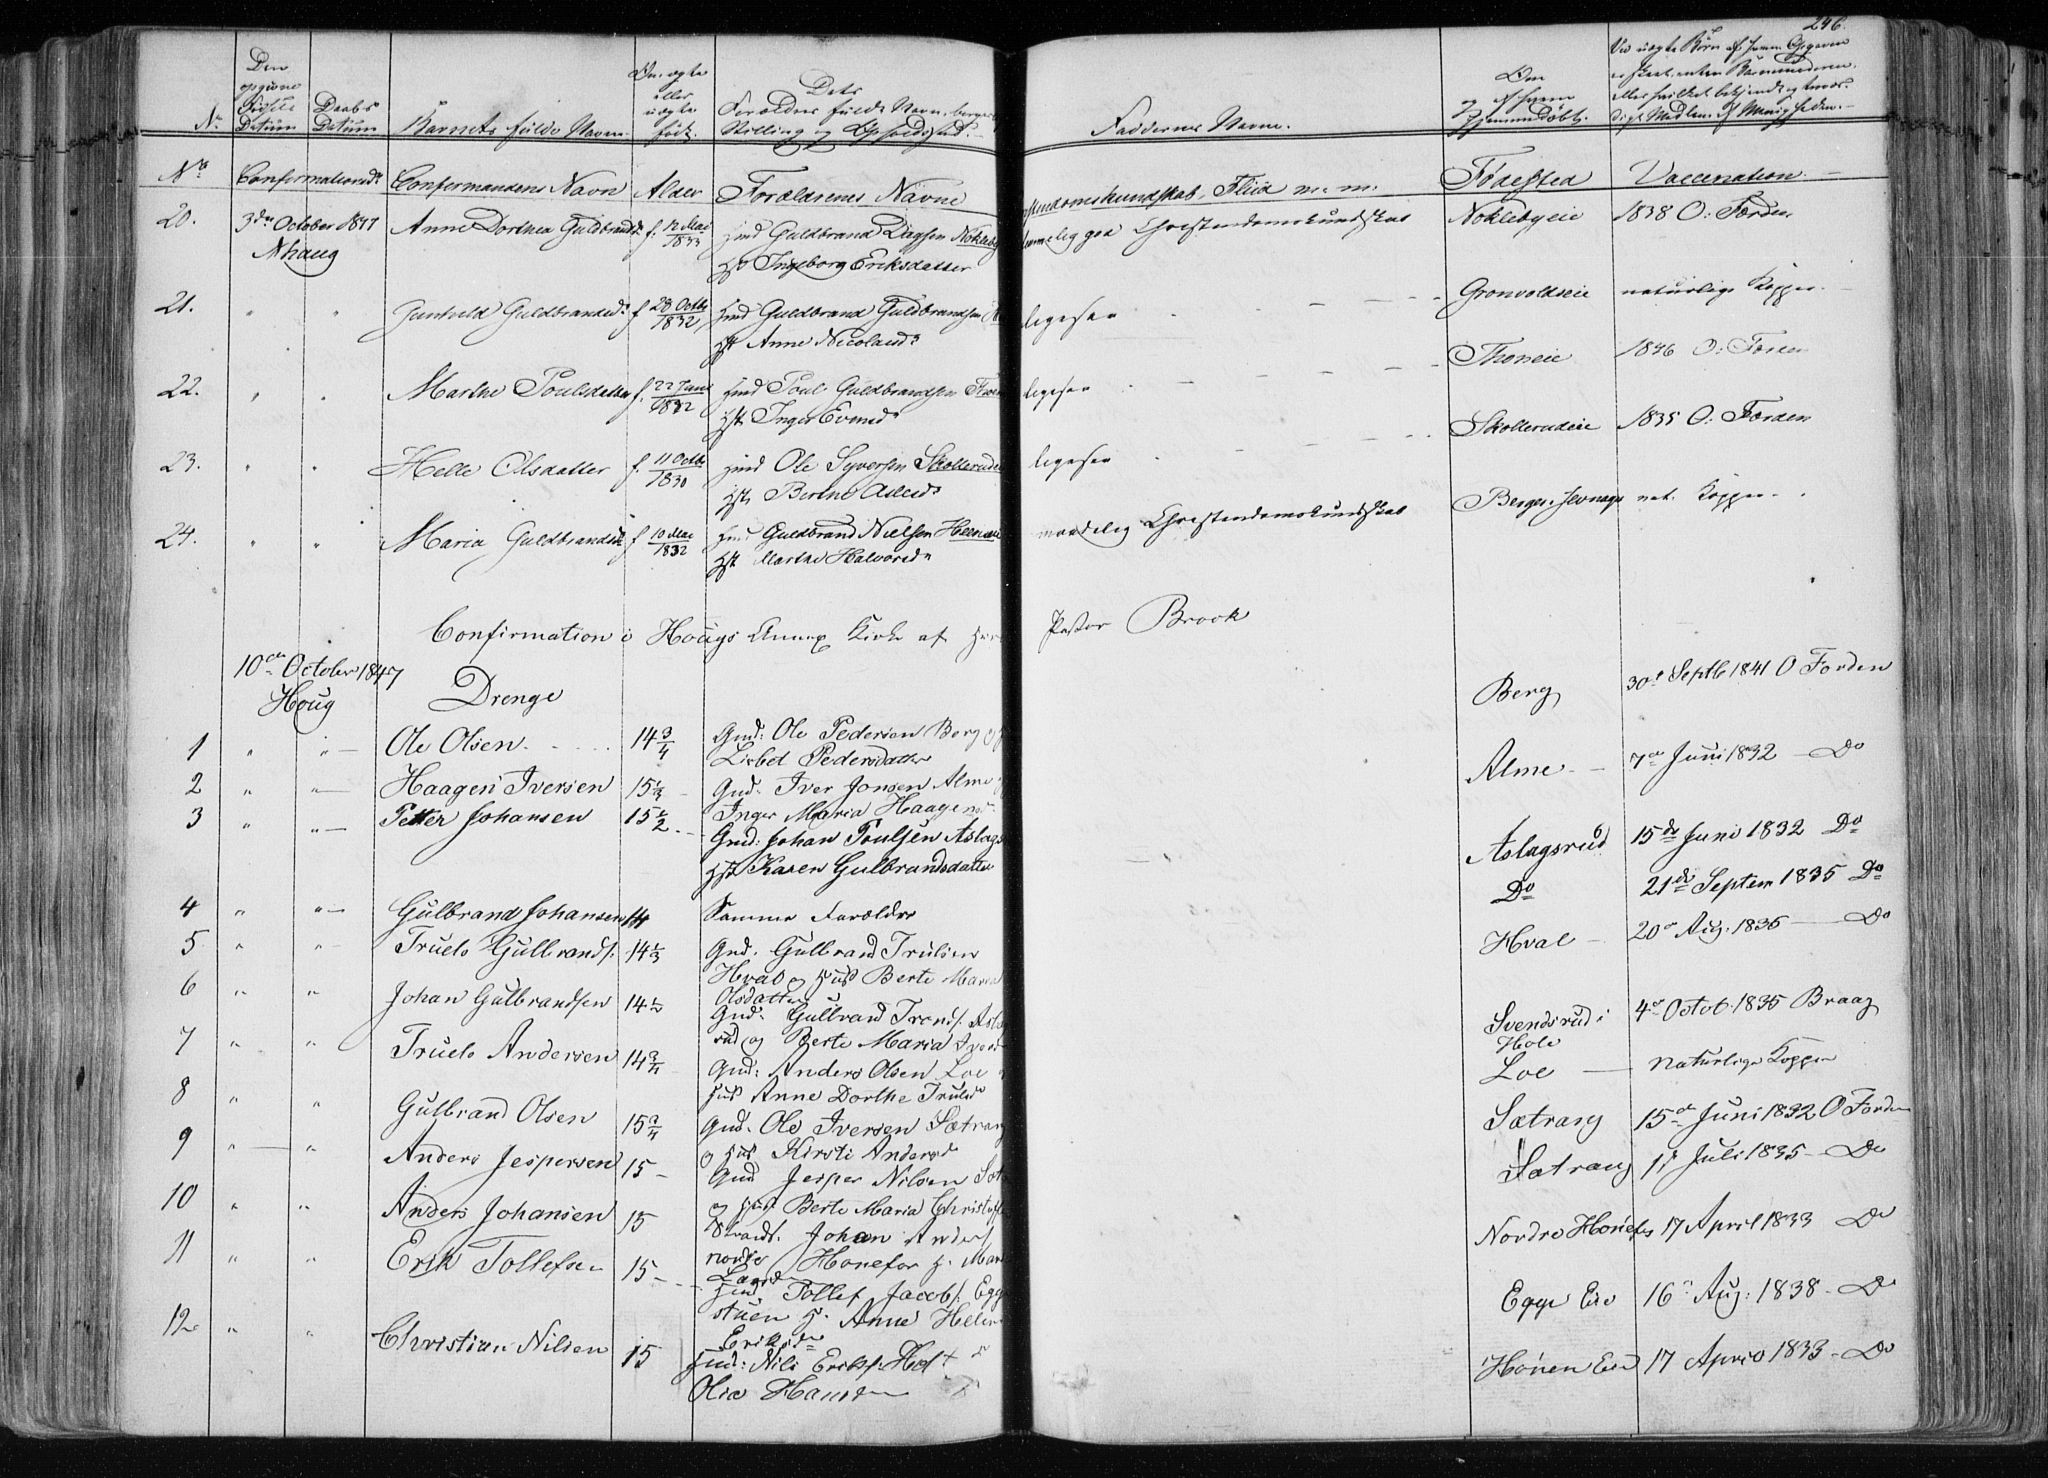 246.
Den
opgivne
Fødsels
Datum
Daabs
Datum
Barnets fulde Navn.
Om ægte
eller
uægte
født.
Dets
Forældres fulde Navn, borgerl.
Stilling og Opholdssted.
Faddernes Navne.
Om
og af hvem
hjemmedöbt.
No Confirmationsd. Confermandens Navn Alder Forældrenes Navne
Christendomskundskab, Fliid m. m. Födested Vaccination
20. 3die October 1847 Anne Dorthea Guldbrandsd. f. 12 Mai 1833 Hmd Guldbrand Dagsen Nokleby
Hst Ingeborg Eriksdatter
Christendomskundskab Noklebyeie 1838 O: Færden
21. " " Gunhild Guldbrandsd. f 28 Octbr 1832 Hmd Guldbrand Guldbrandsen
Hst Anne Nicolausd.
ligesaa Gronvoldseie naturlige Kopper
22. " " Marthe Poulsdatter f. 22 Juni 1832 Hmd Poul Guldbrandsen
Hst Inger Evensd.
ligesaa Thoneie 1846 O: Færden
23. " " Helle Olsdatter f. 11 Octbr 1830 Hmd Ole Syversen Skollerudeie
Hst Berthe
ligesaa Skollerudeie 1835 O: Færden
24. " " Maria Guldbrandsd. f 10 Mai 1832 Hmd Guldbrand Nielsen
Hst Marthe Halvorsd.
maadelig Christendomskundskab nat. Kopper
Confirmation i Hougs Annex Kirke af Herr Pastor Brock
10de October 1847
Houg Drenge
1 " " Ole Olsen 14 3/4 Gmd: Ole Pedersen Berg og
Lisbet Pedersdatter
Berg 30te Septb 1841 O Forden
2 " " Haagen Iversen 15 1/3 Gmd. Iver Jonsen Alme
Inger Maria Haagensd.
Alme 7de Juni 1832 Do
3 " " Petter Johansen 15 1/2 Gmd: Johan Poulsen Aslags
Hst Karen Gulbrandsdatter
Aslagsrud 15de Juni 1832 Do
4 " " Gulbrand Johansen 14 Samme Forældre
Do 21de Septem 1835 Do
5 " " Truels Gulbrands. 14 1/3 Gmd. Gulbrand Trulsen
Hval og Hust Berte Maria
Olsdatter
Hval 20de Aug. 1835 Do
6 " " Johan Gulbrandsen 14 1/2 Gmd. Gulbrand Tronds. Aslag
rud og Berte Maria Iversd
Svendsrud i
Hole
4de Octob. 1835 Braag
7 " " Truels Andersen 14 3/4 Gmd: Anders Olsen Loe
Hus Anne Dorthe Trulsd
Loe naturlige Kopper
8 " " Gulbrand Olsen 15 3/4 Gmd. Ole Iversen Sætrang
og Hus Kirsti Andersd
Sætrang 15de Juni 1832 O Forden
9 " " Anders Jespersen 15 Gmd Jesper Nilsen Sæt
og Hust Berte Maria Christof
Sætrang Juli 1835 Do
10 " " Anders Johansen 15 Strands. Johan Anders
nordre Honefos H. Mar
Larsd
Nordre Hönefos 17 April 1833 Do
11 " " Erik Tollefsen 15 Hmd Tollef Jacobs. Egge
stuen H. Anne Helene
Eriksd
Egge Eie 16de Aug. 1838 Do
12 " " Christian Nilsen 15 Hmd: Nils Eriks.
Olia Hansd
Hönen Eie 17 April 1833 Do